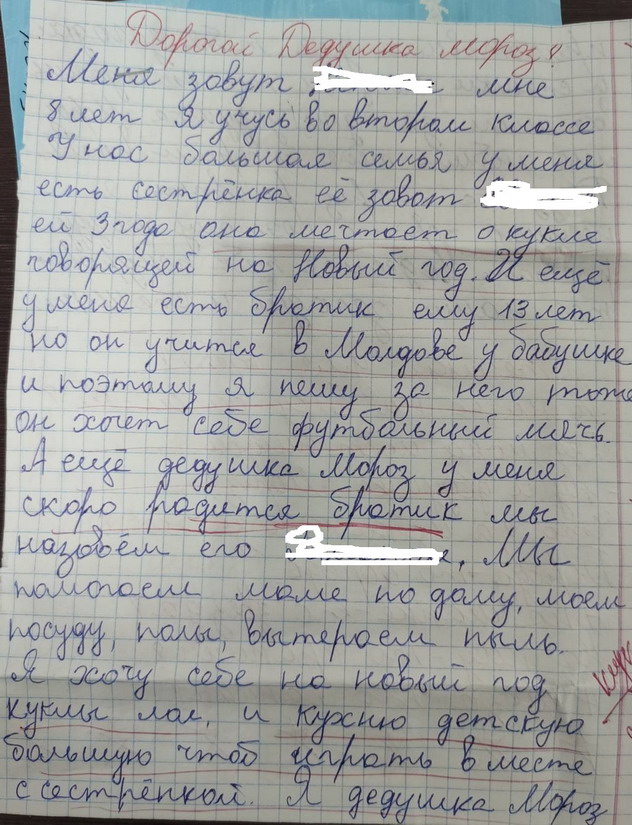 Дорогой Дедушка мороз!
Меня зовут мне
8 лет Я учусь во втором классе
У нас большая семья у меня
есть сестрёнка её зовот
ей 3 года она мечтает о кукле
говорящей на Новый год. И ещё
у меня есть братик ему 13 лет
но он учится в Молдове у бабушке
и поэтому я пешу за него тоже
он хочет себе футбольный мячь.
А ещё дедушка Мороз у меня
скоро радится братик мы
назовём его , Мы
помогаем маме по дому, моем
посуду, полы, вытераем пыль.
Я хочу себе на новый год
куклы лол, и кухню детскую
большую чтоб играть в месте
с сестрёнкой. Я дедушка Мороз